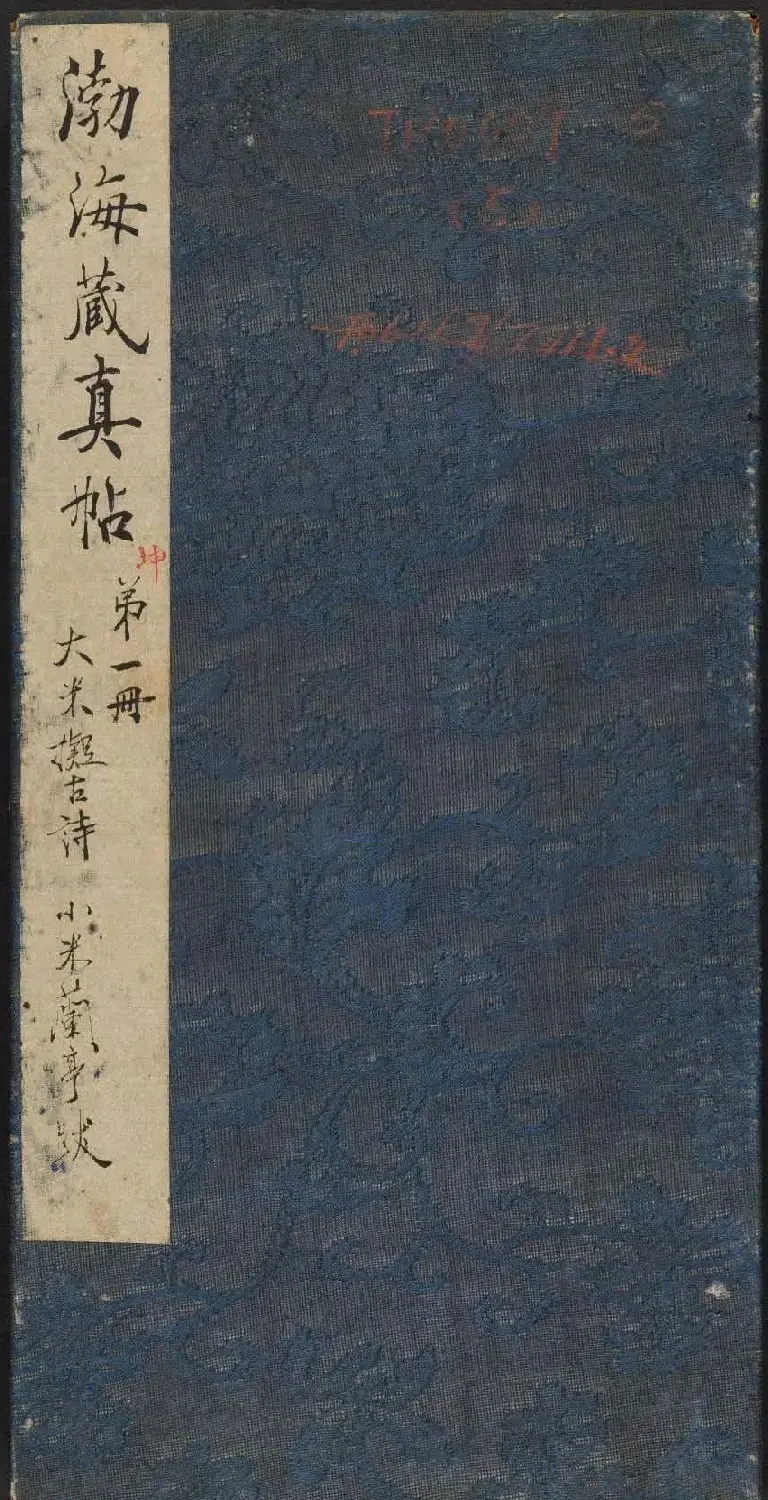 渤海蔵真帖
坤
第一冊
大米擬古詩 小米蘭亭跋